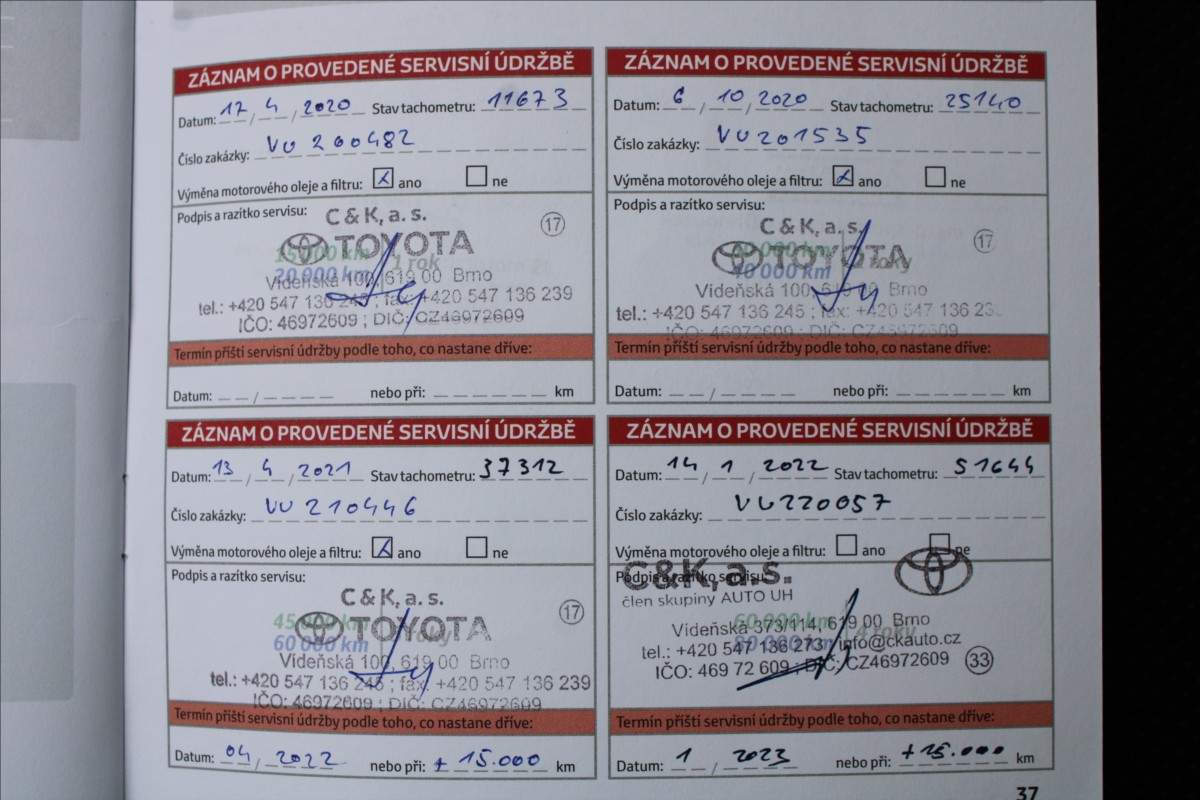 ZÁZNAM O PROVEDENÉ SERVISNÍ ÚDRŽBĚ
Datum: 17 / 4 / 2020 Stav tachometru: 11673
Číslo zakázky: VU 200482
Výměna motorového oleje a filtru: x ano ne
Podpis a razítko servisu:
C & K, a. s.
17
TOYOTA
15 000 km 1 rok
20 000 km
Vídeňská 100, 619 00 Brno
tel.: +420 547 136 245 ; fax: +420 547 136 239
IČO: 46972609 ; DIČ: CZ46972609
Termín příští servisní údržby podle toho, co nastane dříve:
Datum: / nebo při: km
ZÁZNAM O PROVEDENÉ SERVISNÍ ÚDRŽBĚ
Datum: 6 / 10 / 2020 Stav tachometru: 25140
Číslo zakázky: VU201535
Výměna motorového oleje a filtru: x ano ne
Podpis a razítko servisu:
C & K, a. s.
17
TOYOTA
40 000 km roky
Vídeňská 100, 619 00 Brno
tel.: +420 547 136 245 ; fax: +420 547 136 23
IČO: 46972609 ; DIČ: CZ46972609
Termín příští servisní údržby podle toho, co nastane dříve:
Datum: / nebo při: km
ZÁZNAM O PROVEDENÉ SERVISNÍ ÚDRŽBĚ
Datum: 13 / 4 / 2021 Stav tachometru: 37312
Číslo zakázky: VU 210446
Výměna motorového oleje a filtru: x ano ne
Podpis a razítko servisu:
C & K, a. s.
17
TOYOTA
45 000 km roky
60 000 km
Vídeňská 100, 619 00 Brno
tel.: +420 547 136 245 ; fax: +420 547 136 239
IČO: 46972609 ; DIČ: CZ46972609
Termín příští servisní údržby podle toho, co nastane dříve:
Datum: 04 / 2022 nebo při: + 15.000 km
ZÁZNAM O PROVEDENÉ SERVISNÍ ÚDRŽBĚ
Datum: 14 / 1 / 2022 Stav tachometru: 51644
Číslo zakázky: VU220057
Výměna motorového oleje a filtru: ano ne
Podpis a razítko servisu:
C&K, a.s.
člen skupiny AUTO UH
60 000 km 4 roky
80 000 km
Vídeňská 373/114, 619 00 Brno
tel.: +420 547 136 273 info@ckauto.cz
IČO: 469 72 609 ; DIČ: CZ46972609 33
Termín příští servisní údržby podle toho, co nastane dříve:
Datum: 1 / 2023 nebo při: +15.000 km
37